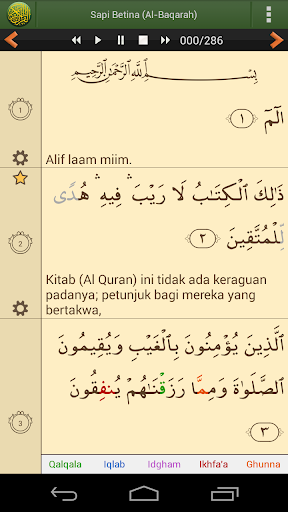 Sapi Betina (Al-Baqarah)
000/286
بِسْمِ ٱللَّهِ ٱلرَّحْمَٰنِ ٱلرَّحِيمِ
1
الٓمٓ ١
Alif laam miim.
ذَٰلِكَ ٱلْكِتَٰبُ لَا رَيْبَ ۛ فِيهِ ۛ هُدًى
2
لِّلْمُتَّقِينَ ٢
Kitab (Al Quran) ini tidak ada keraguan
padanya; petunjuk bagi mereka yang
bertakwa,
ٱلَّذِينَ يُؤْمِنُونَ بِٱلْغَيْبِ وَيُقِيمُونَ
ٱلصَّلَوٰةَ وَمِمَّا رَزَقْنَٰهُمْ يُنفِقُونَ
3
٣
Qalqala Iqlab Idgham Ikhfa'a Ghunna